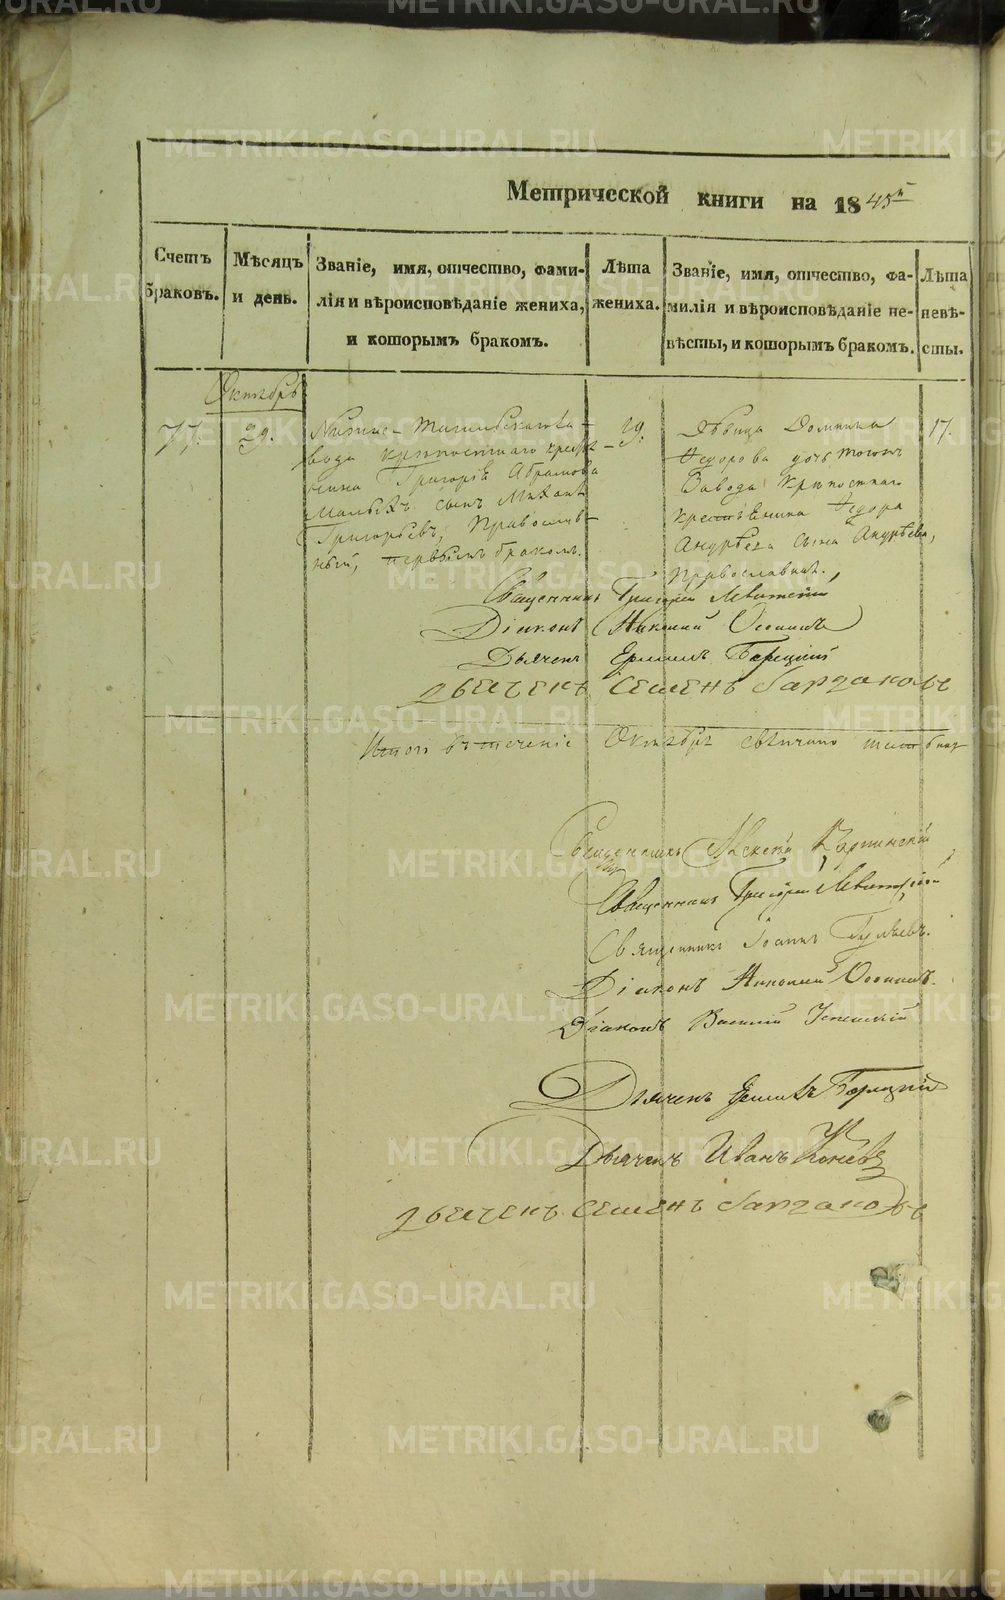 Метрической книги на 1845й
Счетъ браковъ.
Мѣсяцъ и день.
Званіе, имя, отчество, фами-
лія и вѣроисповѣданіе жениха,
и которымъ бракомъ.
Лѣта
жениха.
Званіе, имя, отчество, фа-
милія и вѣроисповѣданіе не-
вѣсты, и которымъ бракомъ.
Лѣта
невѣ-
сты.
Октябрь
77.
29.
Нижне-Тагильскаго за-
вода крѣпостнаго кресть-
янина Григорія Абрамова
сынъ
Григорьевъ, Православ-
ный, первымъ бракомъ.
19.
Дѣвица Домника
Федорова дочь тогожъ
Завода крѣпостнаго
крестьянина Федора
Андрѣева сына Андрѣева,
православная.
17.
Священникъ Григорій Левитскій
Діаконъ Николай
Дьячекъ Ермилъ
дьечекъ семенъ
Итого въ теченіе Октября свѣнчано
Священникъ Алексѣй Карпинскій
Священникъ Григорій Левитскій
Священникъ Іоаннъ Гуляевъ.
Діаконъ Николай
Діаконъ Василій Успенскій
Дьячекъ
Дьячекъ Иванъ Коневъ
дьечекъ семенъ
METRIKI.GASO-URAL.RU